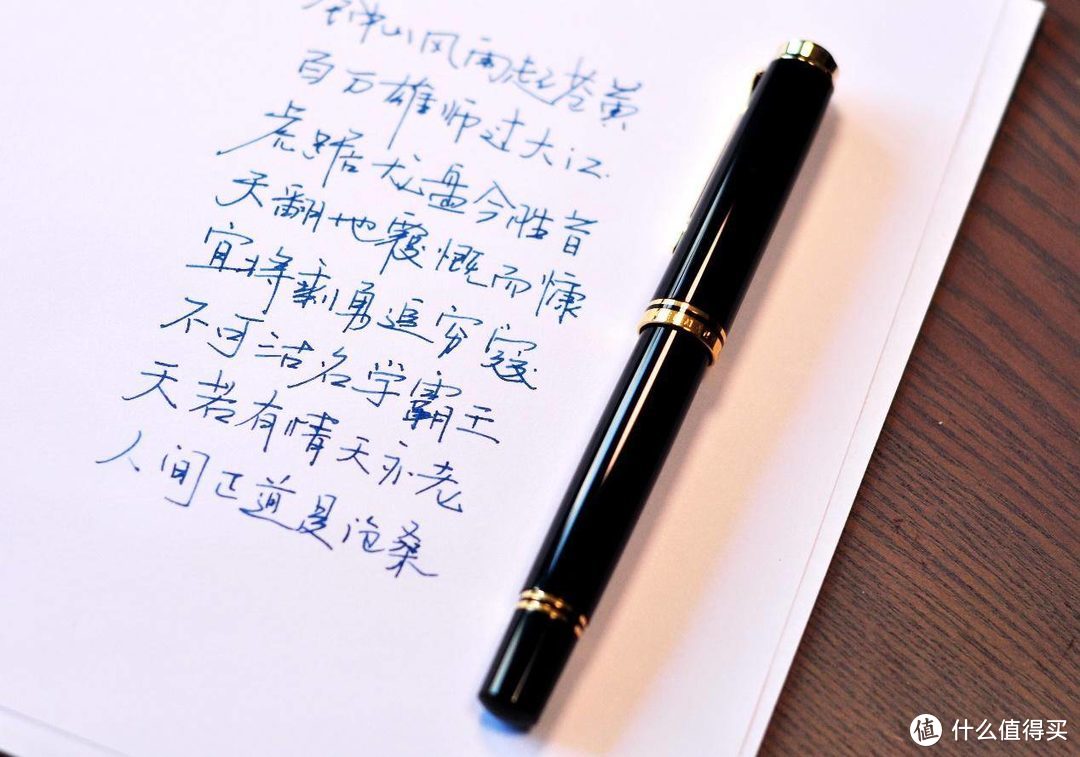 钟山风雨起苍黄
百万雄师过大江
虎踞龙盘今胜昔
天翻地覆慨而慷
宜将剩勇追穷寇
不可沽名学霸王
天若有情天亦老
人间正道是沧桑
值 什么值得买